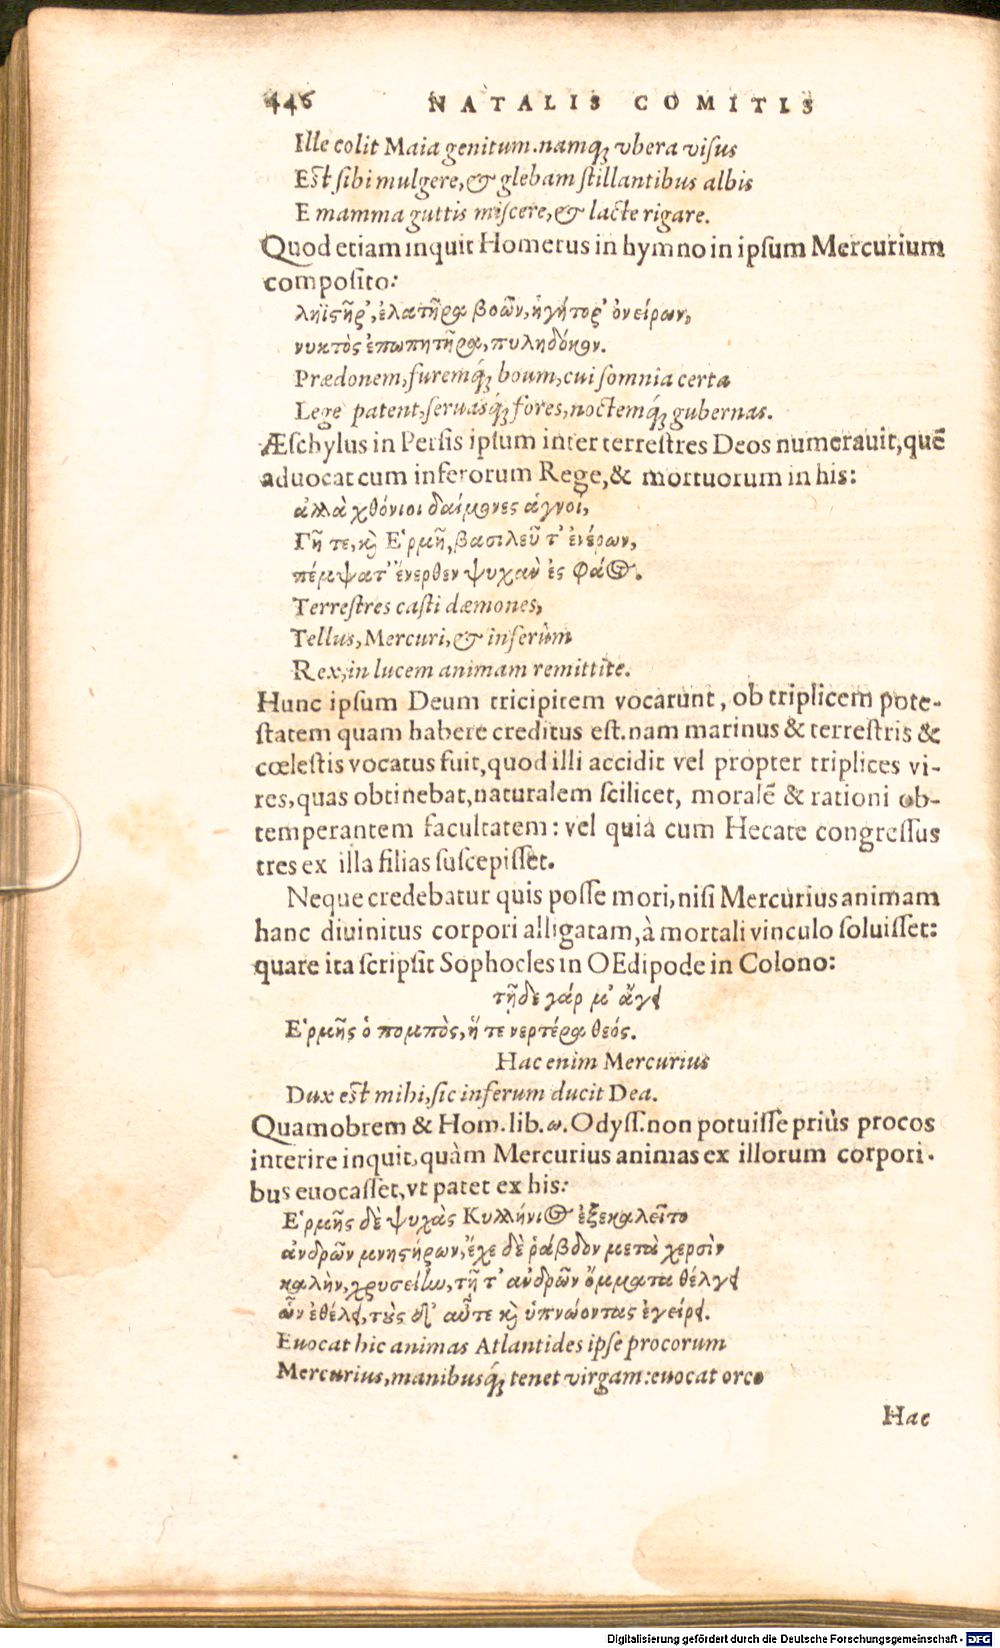 446 NATALIS COMITIS
Ille colit Maia genitum. namq́; vbera visus
Est sibi mulgere, & glebam stillantibus albis
E mamma guttis miscere, & lacte rigare.
Quod etiam inquit Homerus in hymno in ipsum Mercurium
composito:
ληϊςῆρ', ἐλατῆρα βοῶν, ἡγήτορ' ὀνείρων,
νυκτὸς ἐπωπητῆρα, πυληδόκον.
Prædonem, furemq́; boum, cui somnia certa
Lege patent, seruasq́; fores, noctemq́; gubernas.
Æschylus in Persis ipsum inter terrestres Deos numerauit, quē
aduocat cum inferorum Rege, & mortuorum in his:
ἀλλὰ χθόνιοι δαίμονες ἁγνοί,
Γῆ τε, κỳ Ἑρμῆ, βασιλεῦ τ' ἐνέρων,
πέμψατ' ἔνερθεν ψυχὰν ἐς φάος.
Terrestres casti dæmones,
Tellus, Mercuri, & inferûm
Rex, in lucem animam remittite.
Hunc ipsum Deum tricipitem vocarunt, ob triplicem pote-
statem quam habere creditus est. nam marinus & terrestris &
cœlestis vocatus fuit, quod illi accidit vel propter triplices vi-
res, quas obtinebat, naturalem scilicet, moralē & rationi ob-
temperantem facultatem: vel quia cum Hecate congressus
tres ex illa filias suscepisset.
Neque credebatur quis posse mori, nisi Mercurius animam
hanc diuinitus corpori alligatam, à mortali vinculo soluisset:
quare ita scripsit Sophocles in OEdipode in Colono:
τῇδε γάρ μ' ἄγει
Ἑρμῆς ὁ πομπὸς, ἥ τε νερτέρα θεός.
Hac enim Mercurius
Dux est mihi, sic inferum ducit Dea.
Quamobrem & Hom. lib. ω. Odyss. non potuisse priùs procos
interire inquit, quàm Mercurius animas ex illorum corpori-
bus euocasset, vt patet ex his:
Ἑρμῆς δὲ ψυχὰς Κυλλήνιος ἐξεκαλεῖτο
ἀνδρῶν μνηςήρων, ἔχε δὲ ῥάβδον μετὰ χερσὶν
καλὴν, χρυσείην, τῇ τ' ἀνδρῶν ὄμματα θέλγει
ὧν ἐθέλει, τοὺς δ' αὖτε κỳ ὑπνώοντας ἐγείρει.
Euocat hic animas Atlantides ipse procorum
Mercurius, manibusq́; tenet virgam: euocat orco
Hac
Digitalisierung gefördert durch die Deutsche Forschungsgemeinschaft - DFG